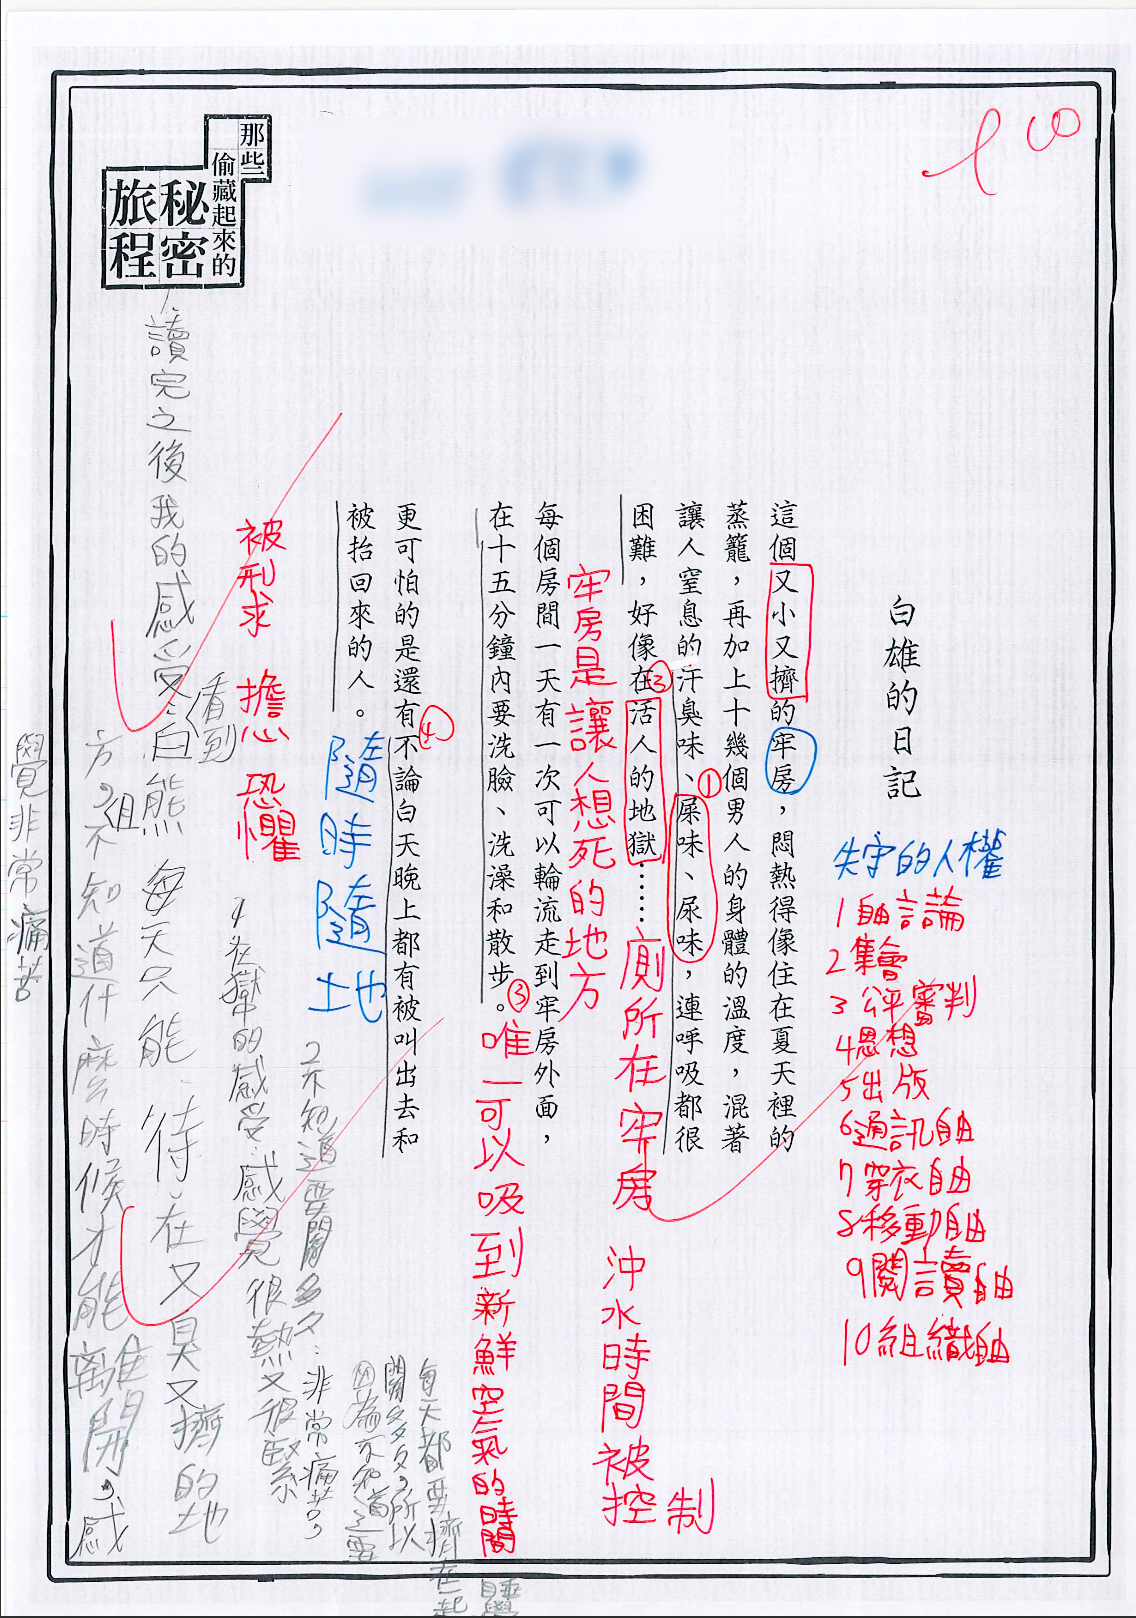 那些
偷藏起來的
秘密
旅程
100
白雄的日記
這個又小又擠的牢房，悶熱得像住在夏天裡的
蒸籠，再加上十幾個男人的身體的溫度，混著
讓人窒息的汗臭味、屎味、尿味，連呼吸都很
困難，好像在活人的地獄……
每個房間一天有一次可以輪流走到牢房外面，
在十五分鐘內要洗臉、洗澡和散步。
更可怕的是還有不論白天晚上都有被叫出去和
被抬回來的人。
失守的人權
1自由言論
2集會
3公評審判
4思想
5出版
6通訊自由
7穿衣自由
8移動自由
9閱讀自由
10組織自由
①
廁所在牢房
沖水時間被控制
②
牢房是讓人想死的地方
③
唯一可以吸到新鮮空氣的時間
④
隨時隨地
被刑求 擔心 恐懼
1.讀完之後我的感受：看到白熊每天只能待在又臭又擠的地
方。不知道什麼時候才能離開。感
覺非常痛苦
在獄中的感受：感覺很熱又很緊
2不知道要關多久：非常痛苦，
因為不知道要
關多久，所以
每天都要擠在一起